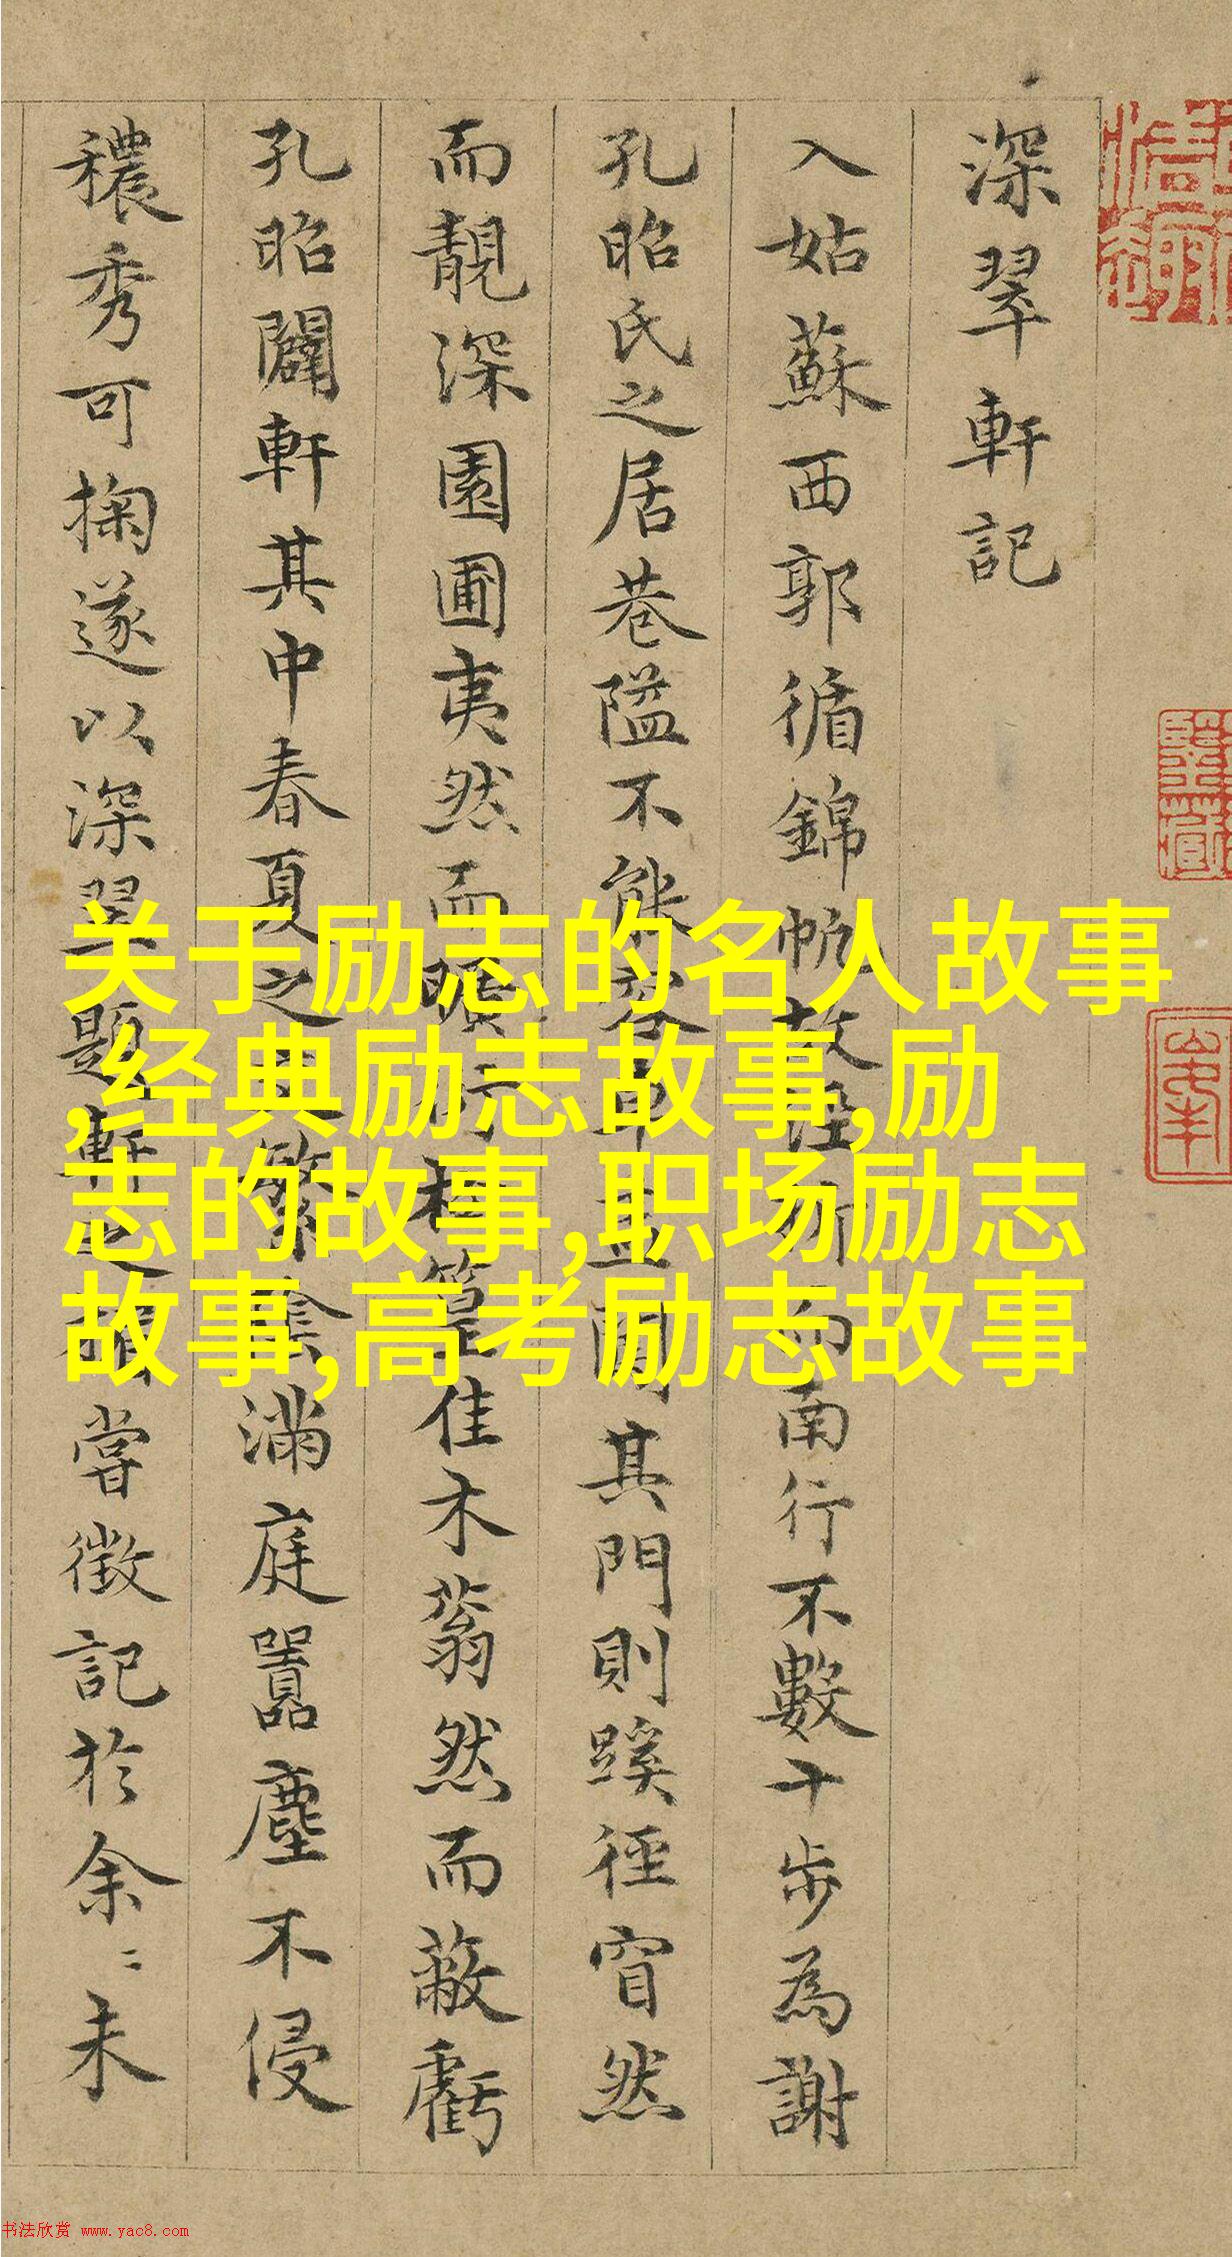 深翠軒記
入姑蘇西郭循錦帆故涇折而南行不數十步為謝
孔昭氏之居巷隘不能容車蓋闖其門則蹊徑窅然
而靚深園圃夷然而曠朗修篁佳木蓊然而蔽虧
孔昭闢軒其中春夏之交繁陰滿庭囂塵不侵
穠秀可掬遂以深翠題軒之楣嘗徵記於余〻未
关于励志的名人故事
,经典励志故事,励
志的故事,职场励志
故事,高考励志故事
书法欣赏 www.yac8.com